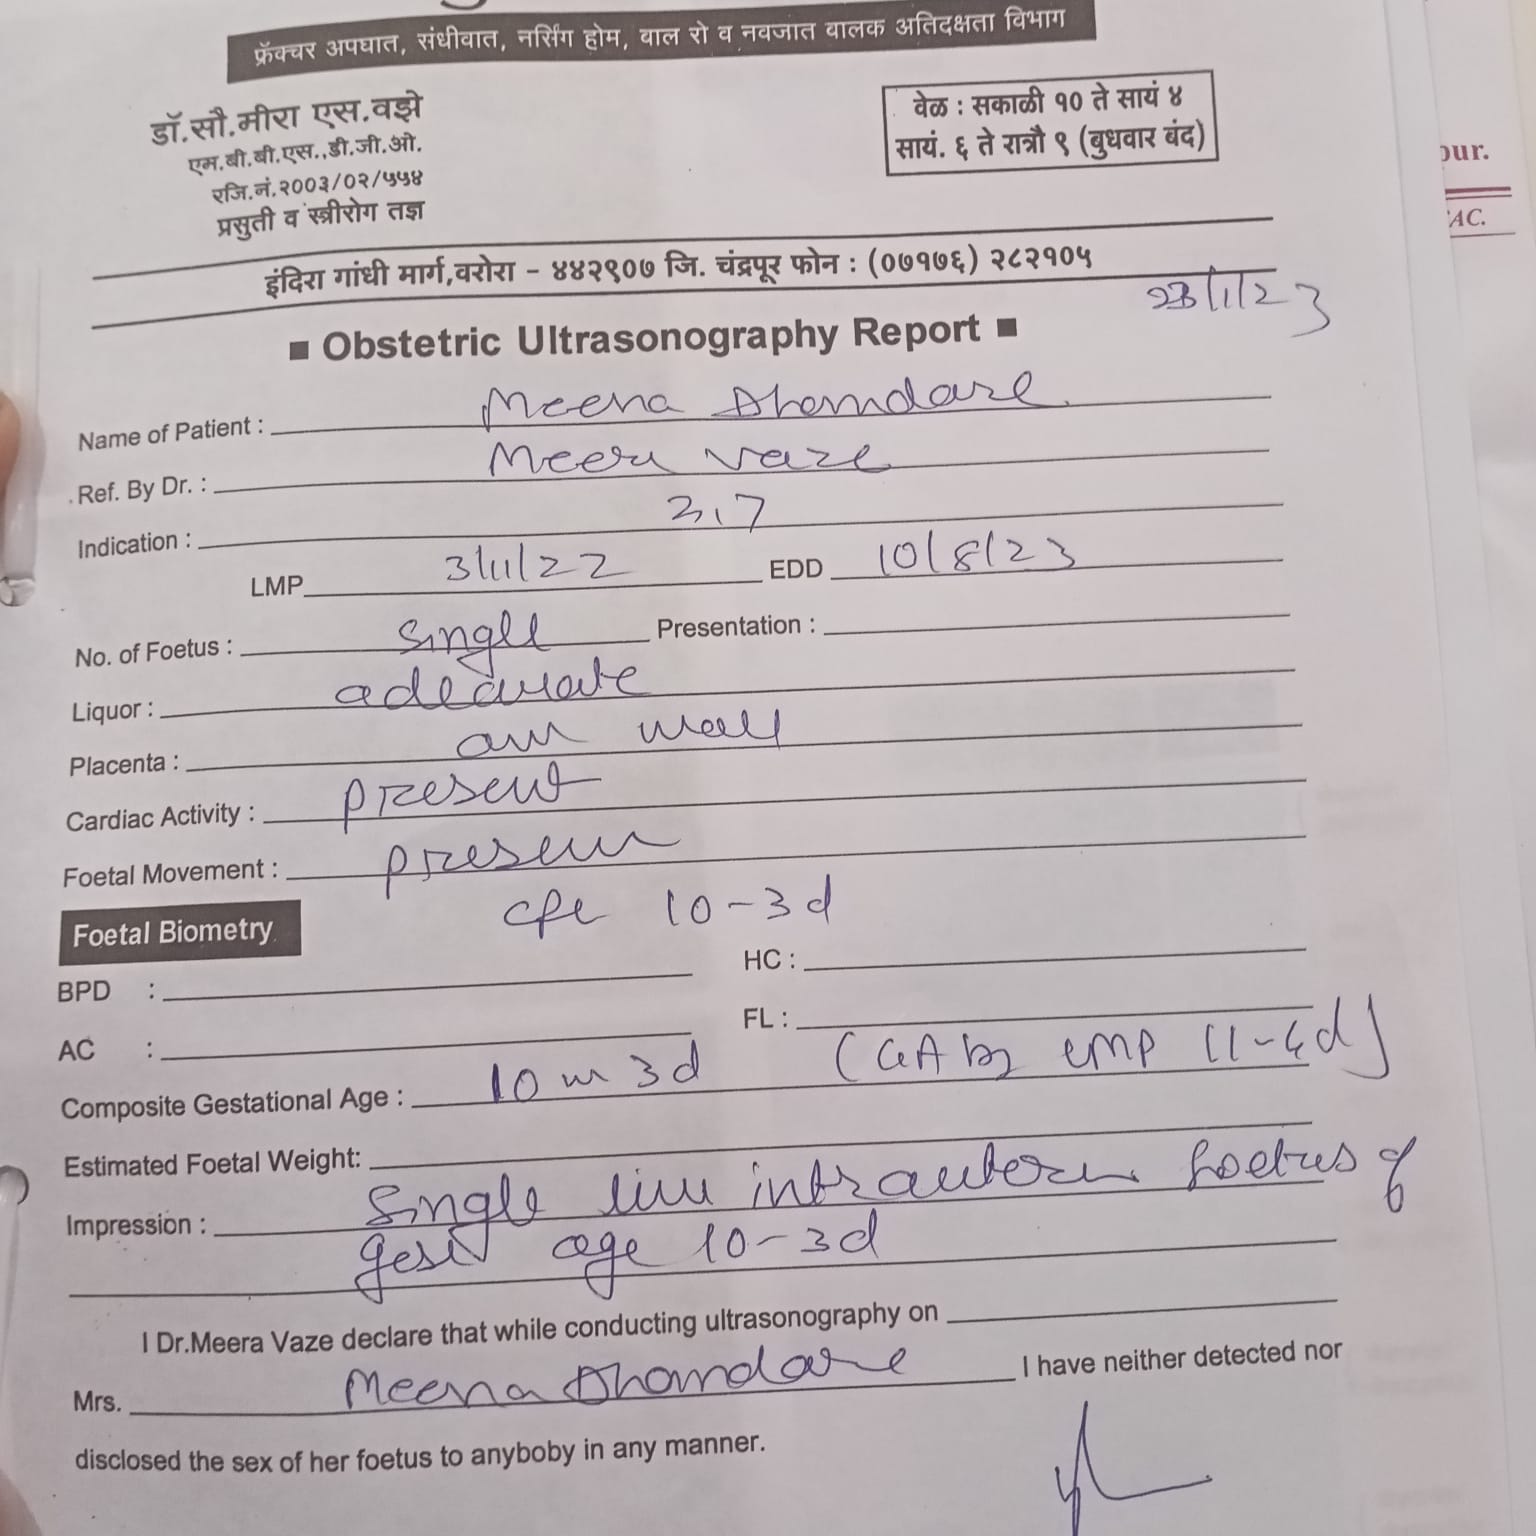 फ्रॅक्चर अपघात, संधीवात, नर्सिंग होम, बाल रो व नवजात बालक अतिदक्षता विभाग
डॉ.सौ.मीरा एस.वझे
एम.बी.बी.एस.,डी.जी.ओ.
रजि.नं.२००३/०२/५५४
प्रसुती व स्त्रीरोग तज्ञ
वेळ : सकाळी १० ते सायं ४
सायं. ६ ते रात्रौ ९ (बुधवार बंद)
our.
AC.
इंदिरा गांधी मार्ग,वरोरा - ४४२९०७ जि. चंद्रपूर फोन : (०७१७६) २८२१०५
23/1/23
■ Obstetric Ultrasonography Report ■
Name of Patient : Meena Dhamdare
Ref. By Dr. : Meera Vaze
Indication : 3,7
LMP 3/11/22 EDD 10/8/23
No. of Foetus : Single Presentation :
Liquor : adequate
Placenta : ant wall
Cardiac Activity : present
Foetal Movement : present
10-3d
Foetal Biometry
BPD : HC :
AC : FL :
Composite Gestational Age : 10 w 3d (GA by LMP 11-4d)
Estimated Foetal Weight:
Impression : Single live intrauterine foetus of
gest age 10-3d
I Dr.Meera Vaze declare that while conducting ultrasonography on
Mrs. Meena Dhamdare I have neither detected nor
disclosed the sex of her foetus to anyboby in any manner.